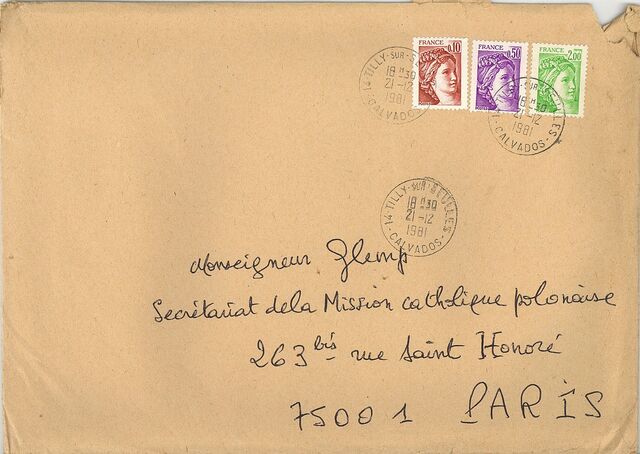 FRANCE 0,10
FRANCE 0,50
FRANCE 2,00
14 TILLY-SUR-S
18 H30
21-12
1981
CALVADOS
SUR-SEULLES
18 H30
21-12
1981
- CALVADOS -
14 TILLY-SUR-SEULLES
18 H30
21-12
1981
- CALVADOS -
Monseigneur Glemp
Secrétariat de la Mission catholique polonaise
263 bis rue Saint Honoré
75001 PARIS